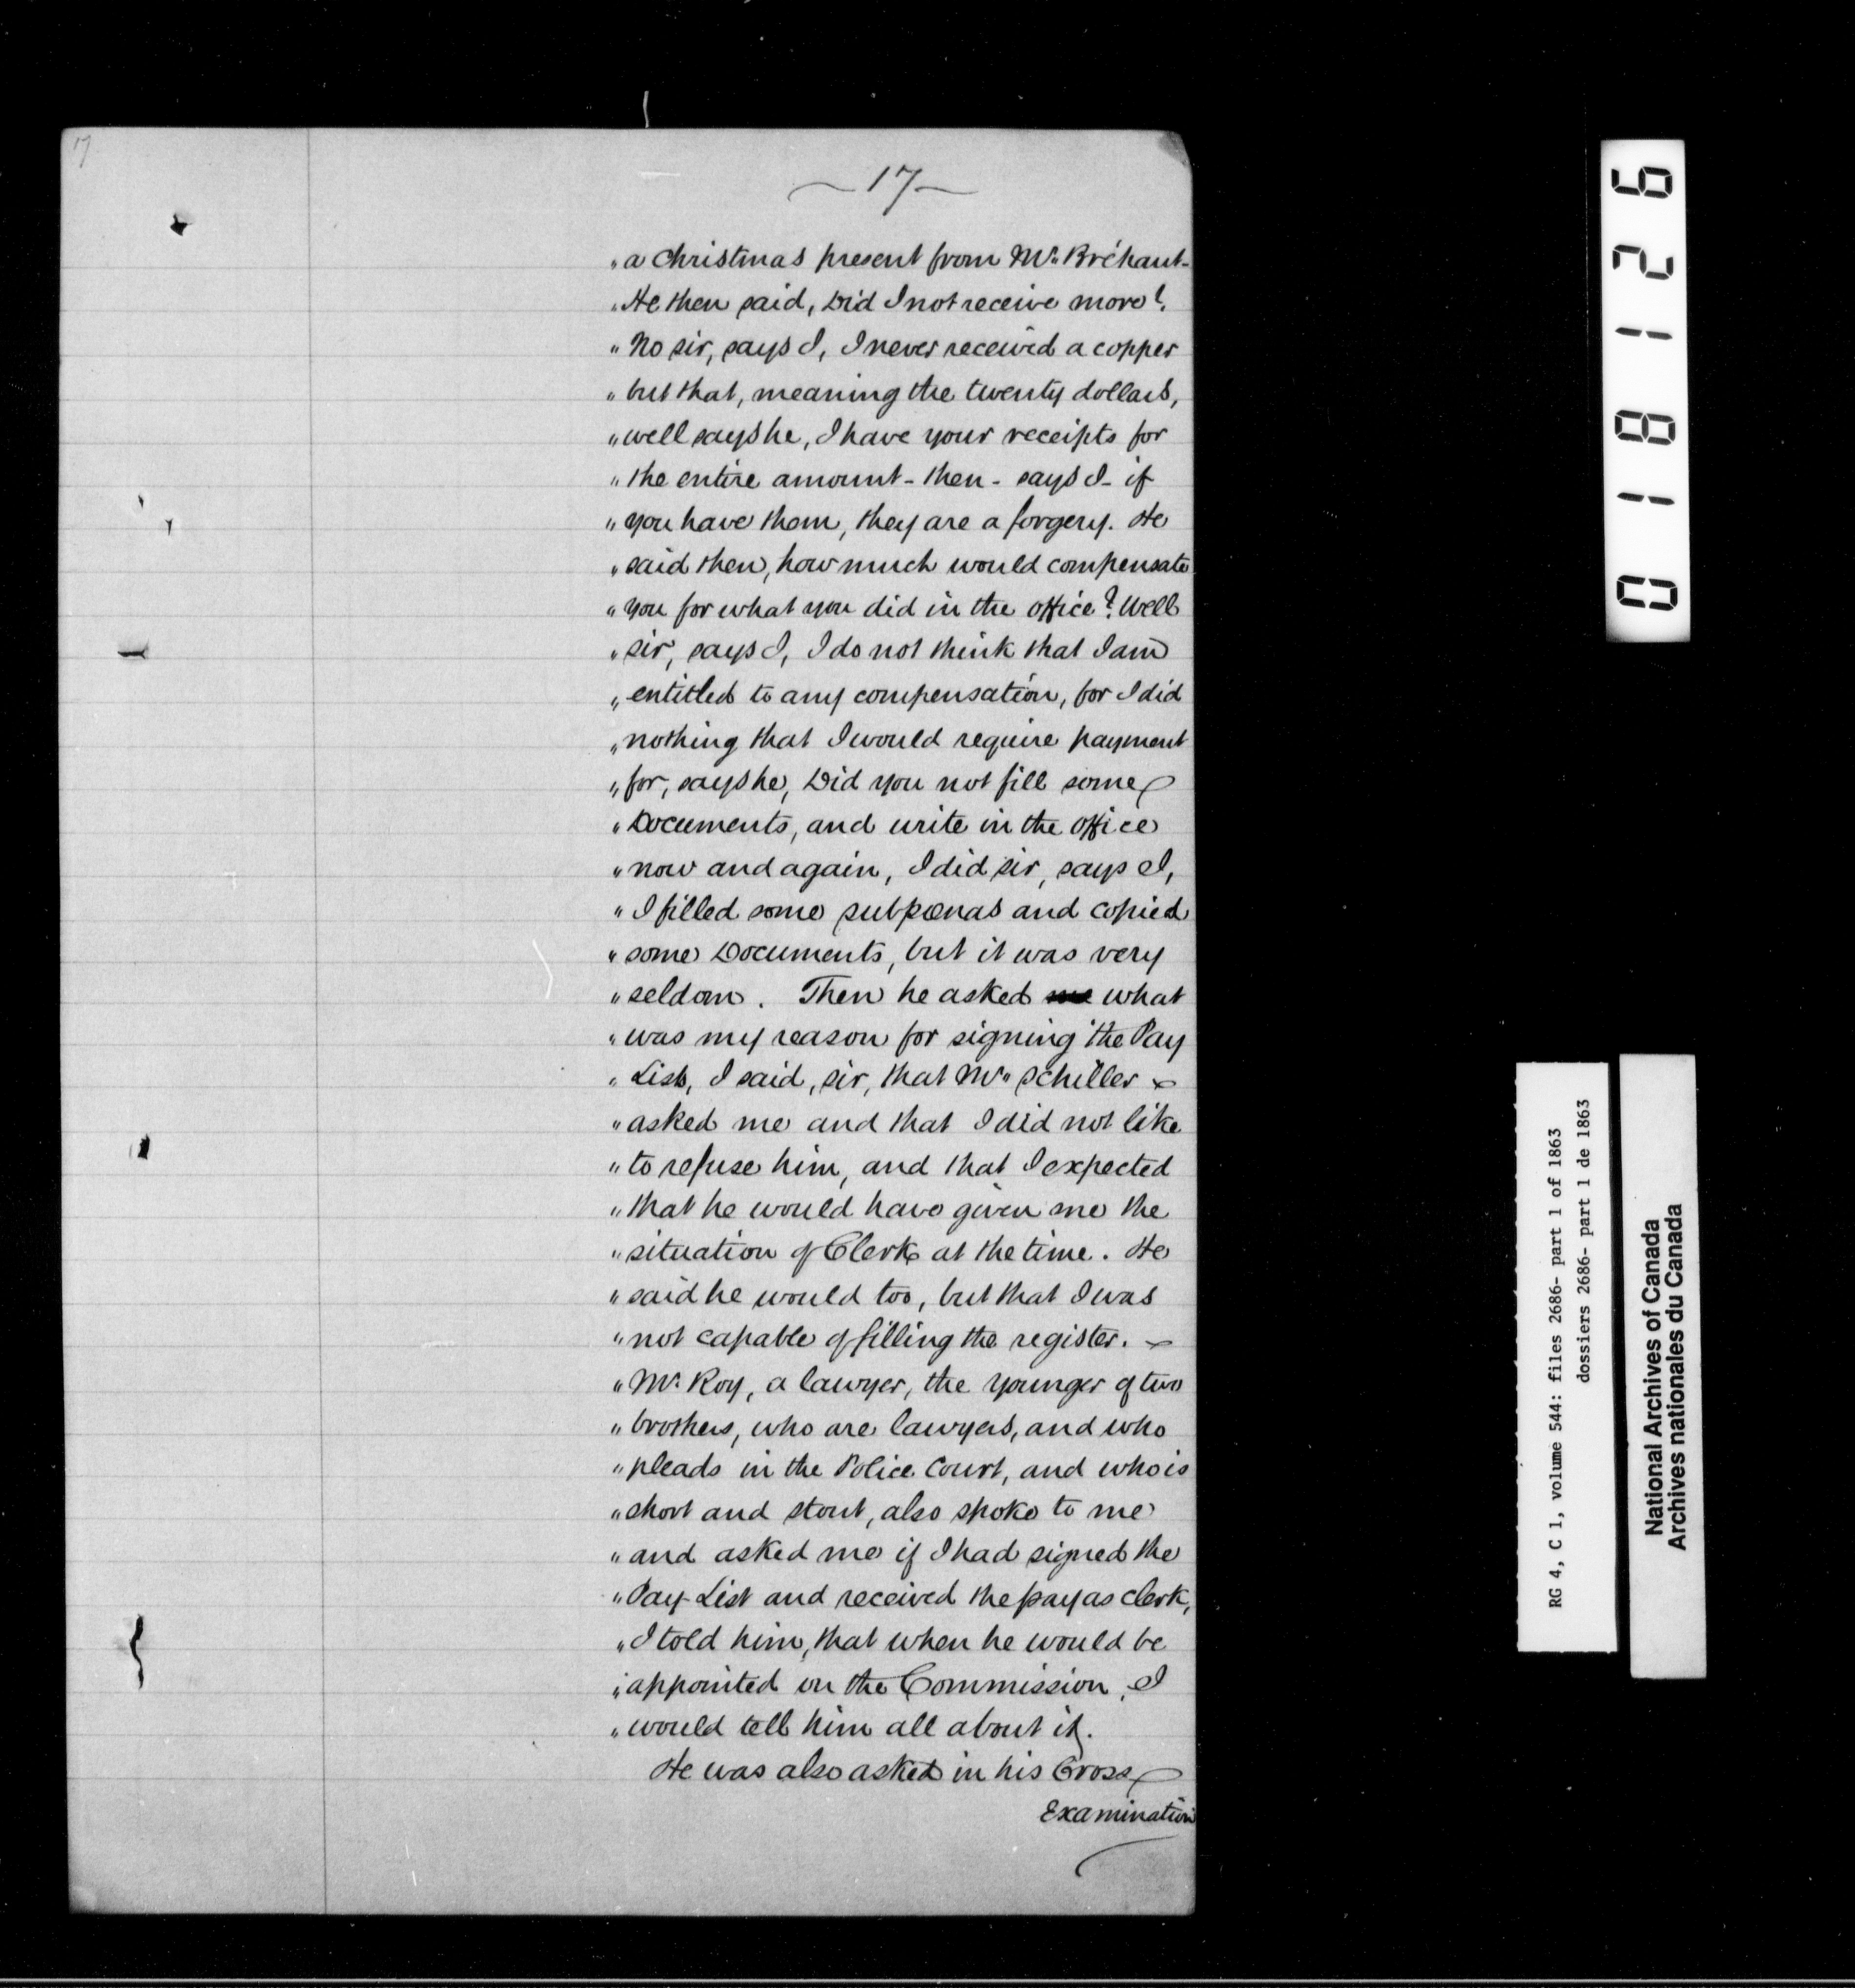 17
— 17 —
„ a Christmas present from Mr. Bréhaut-
„ He then said, Did I not receive more?
„ No sir, says I, I never received a copper
„ but that, meaning the twenty dollars,
„ well says he, I have your receipts for
„ the entire amount - then - says I - if
„ you have them, they are a forgery. He
„ said then, how much would compensate
„ you for what you did in the office? Well
„ sir, says I, I do not think that I am
„ entitled to any compensation, for I did
„ nothing that I would require payment
„ for, says he, Did you not fill some
„ Documents, and write in the office
„ now and again, I did sir, says I,
„ I filled some subpœnas and copied
„ some Documents, but it was very
„ seldom. Then he asked me what
„ was my reason for signing the Pay
„ List, I said, sir, that Mr. Schiller
„ asked me and that I did not like
„ to refuse him, and that I expected
„ that he would have given me the
„ situation of Clerk at the time. He
„ said he would too, but that I was
„ not capable of filling the register.
„ Mr. Roy, a lawyer, the younger of two
„ brothers, who are lawyers, and who
„ pleads in the Police Court, and who is
„ short and stout, also spoke to me
„ and asked me if I had signed the
„ Pay-List and received the pay as clerk,
„ I told him, that when he would be
„ appointed on the Commission, I
„ would tell him all about it.
He was also asked in his Cross
Examination
018126
RG 4, C 1, volume 544: files 2686- part 1 of 1863
dossiers 2686- part 1 de 1863
National Archives of Canada
Archives nationales du Canada